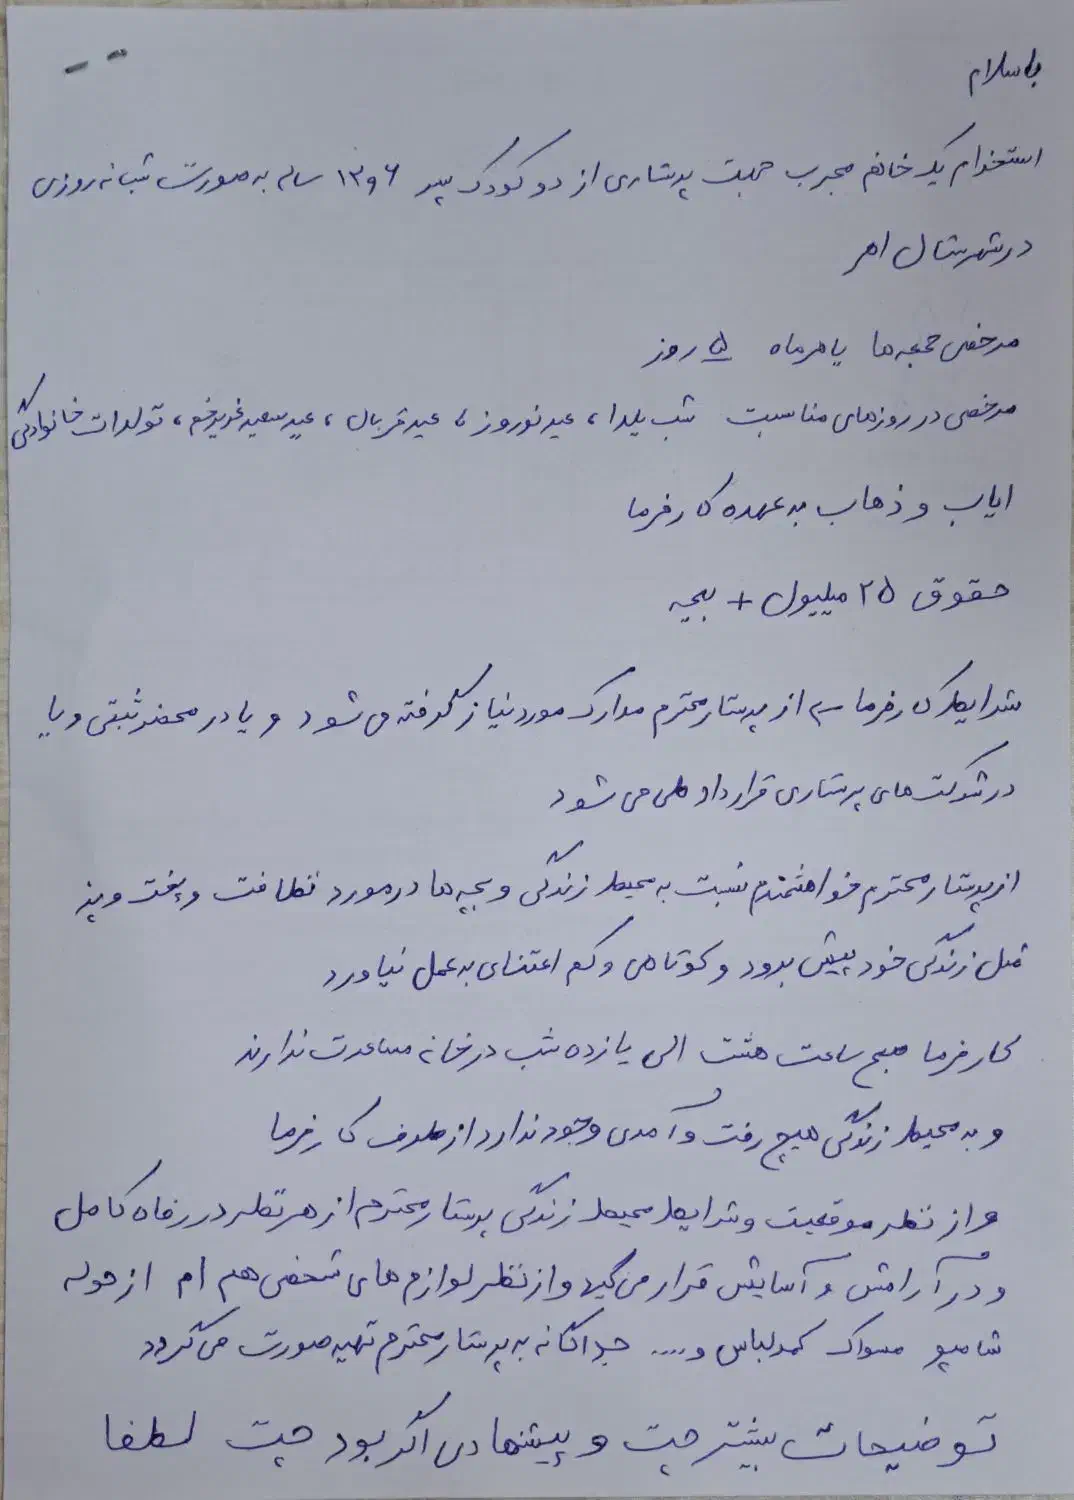 با سلام
استخدام یک خانم مجرب جهت پرستاری از دو کودک پسر ۶ و ۱۳ ساله به صورت شبانه روزی
در شهرستان اهر
مرخصی جمعه ها یا هر ماه ۵ روز
مرخصی در روزهای مناسبت شب یلدا ، عید نوروز ، عید قربان ، عید سعید غدیر خم ، تولدات خانوادگی
ایاب و ذهاب به عهده کارفرما
حقوق ۲۵ میلیون + بیمه
شرایط کارفرما از پرستار محترم مدارک مورد نیاز گرفته می شود و یا در محضر ثبتی و یا
در شرکت های پرستاری قرارداد طی می شود
از پرستار محترم خواهشمندم نسبت به محیط زندگی و بچه ها در مورد نظافت و پخت و پز
مثل زندگی خود پیش برود و کوتاهی و کم اعتنای به عمل نیاورد
کارفرما صبح ساعت هشت الی یازده شب در خانه مساعدت ندارند
و به محیط زندگی هیچ رفت و آمدی وجود ندارد از طرف کارفرما
و از نظر موقعیت و شرایط محیط زندگی پرستار محترم از هر نظر در رفاه کامل
و در آرامش و آسایش قرار می گیرد و از نظر لوازم های شخصی هم ام از حوله
شامپو مسواک کمد لباس و .... جداگانه به پرستار محترم تهیه صورت می گردد
توضیحات بیشتر چت و پیشنهادی اگر بود چت لطفا